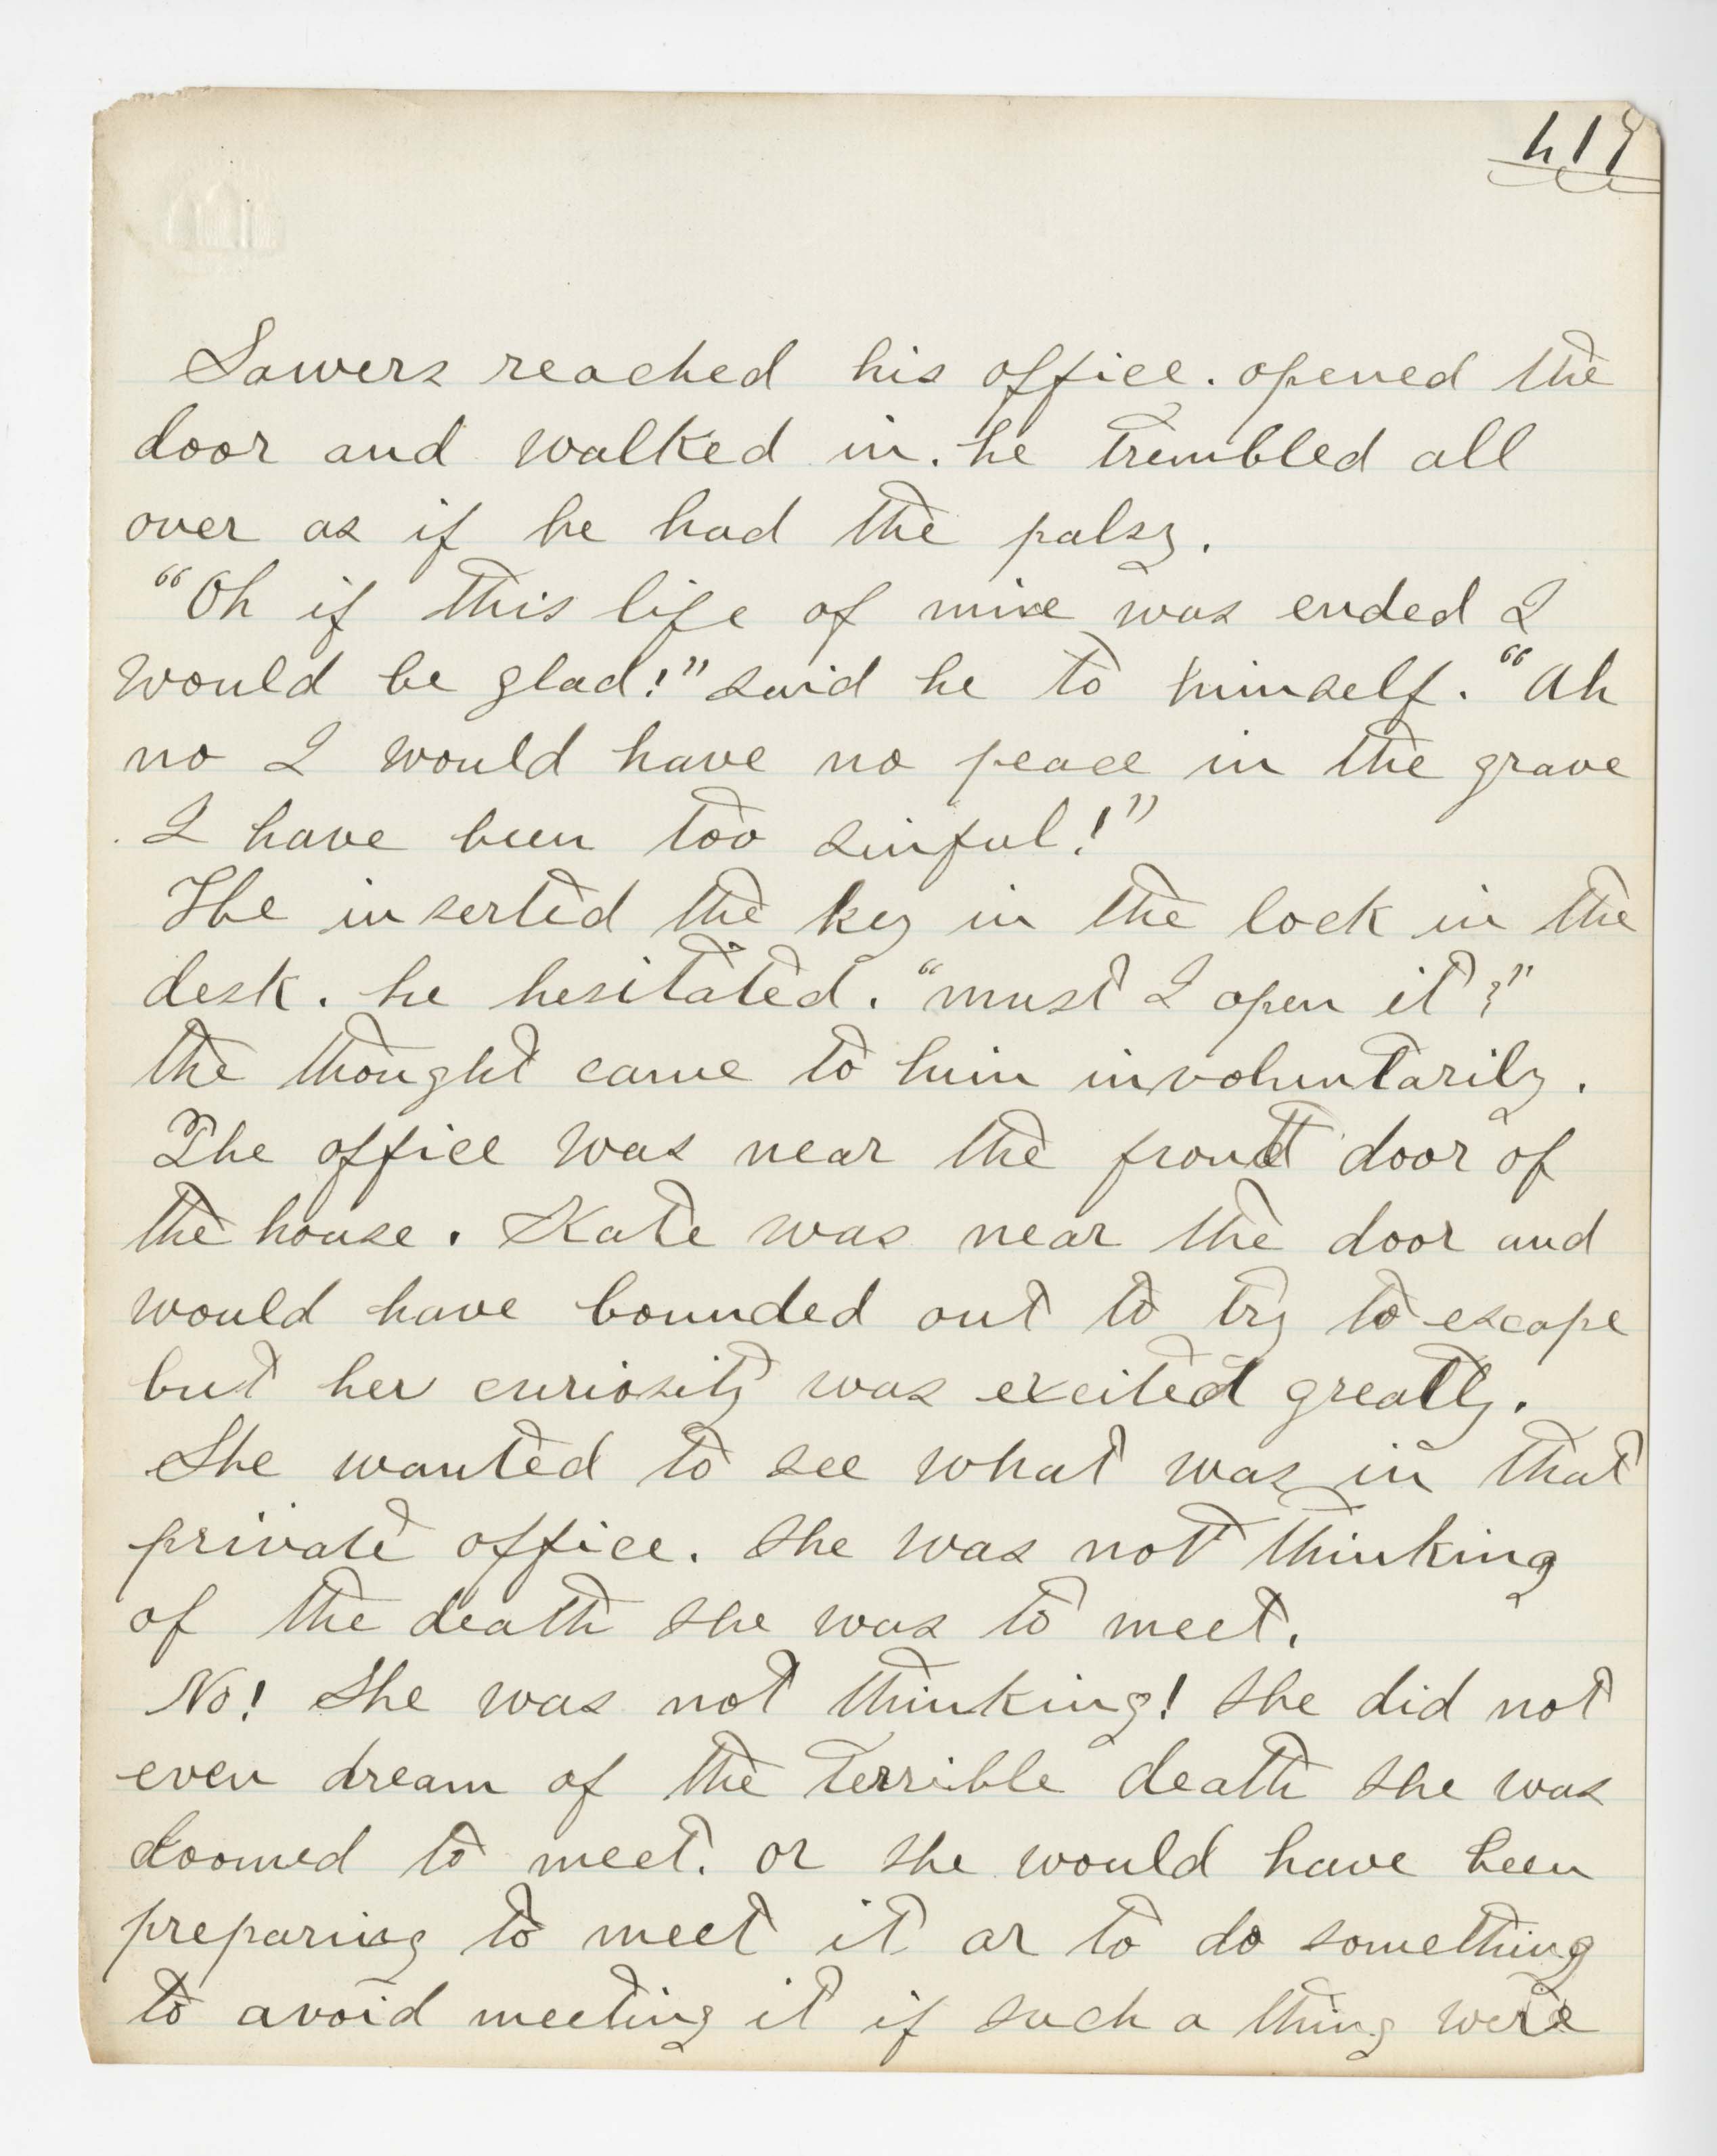 419
Sawers reached his office. opened the
door and walked in. he trembled all
over as if he had the palsy.
"Oh if this life of mine was ended I
would be glad!" said he to himself. "Ah
no I would have no peace in the grave
I have been too sinful!"
The inserted the key in the lock in the
desk. he hesitated. "must I open it?"
the thought came to him involuntarily.
The office was near the front door of
the house. Kate was near the door and
would have bounded out to try to escape
but her curiosity was excited greatly.
She wanted to see what was in that
private office. She was not thinking
of the death she was to meet.
No! She was not thinking! She did not
even dream of the terrible death she was
doomed to meet. or she would have been
preparing to meet it or to do something
to avoid meeting it if such a thing were